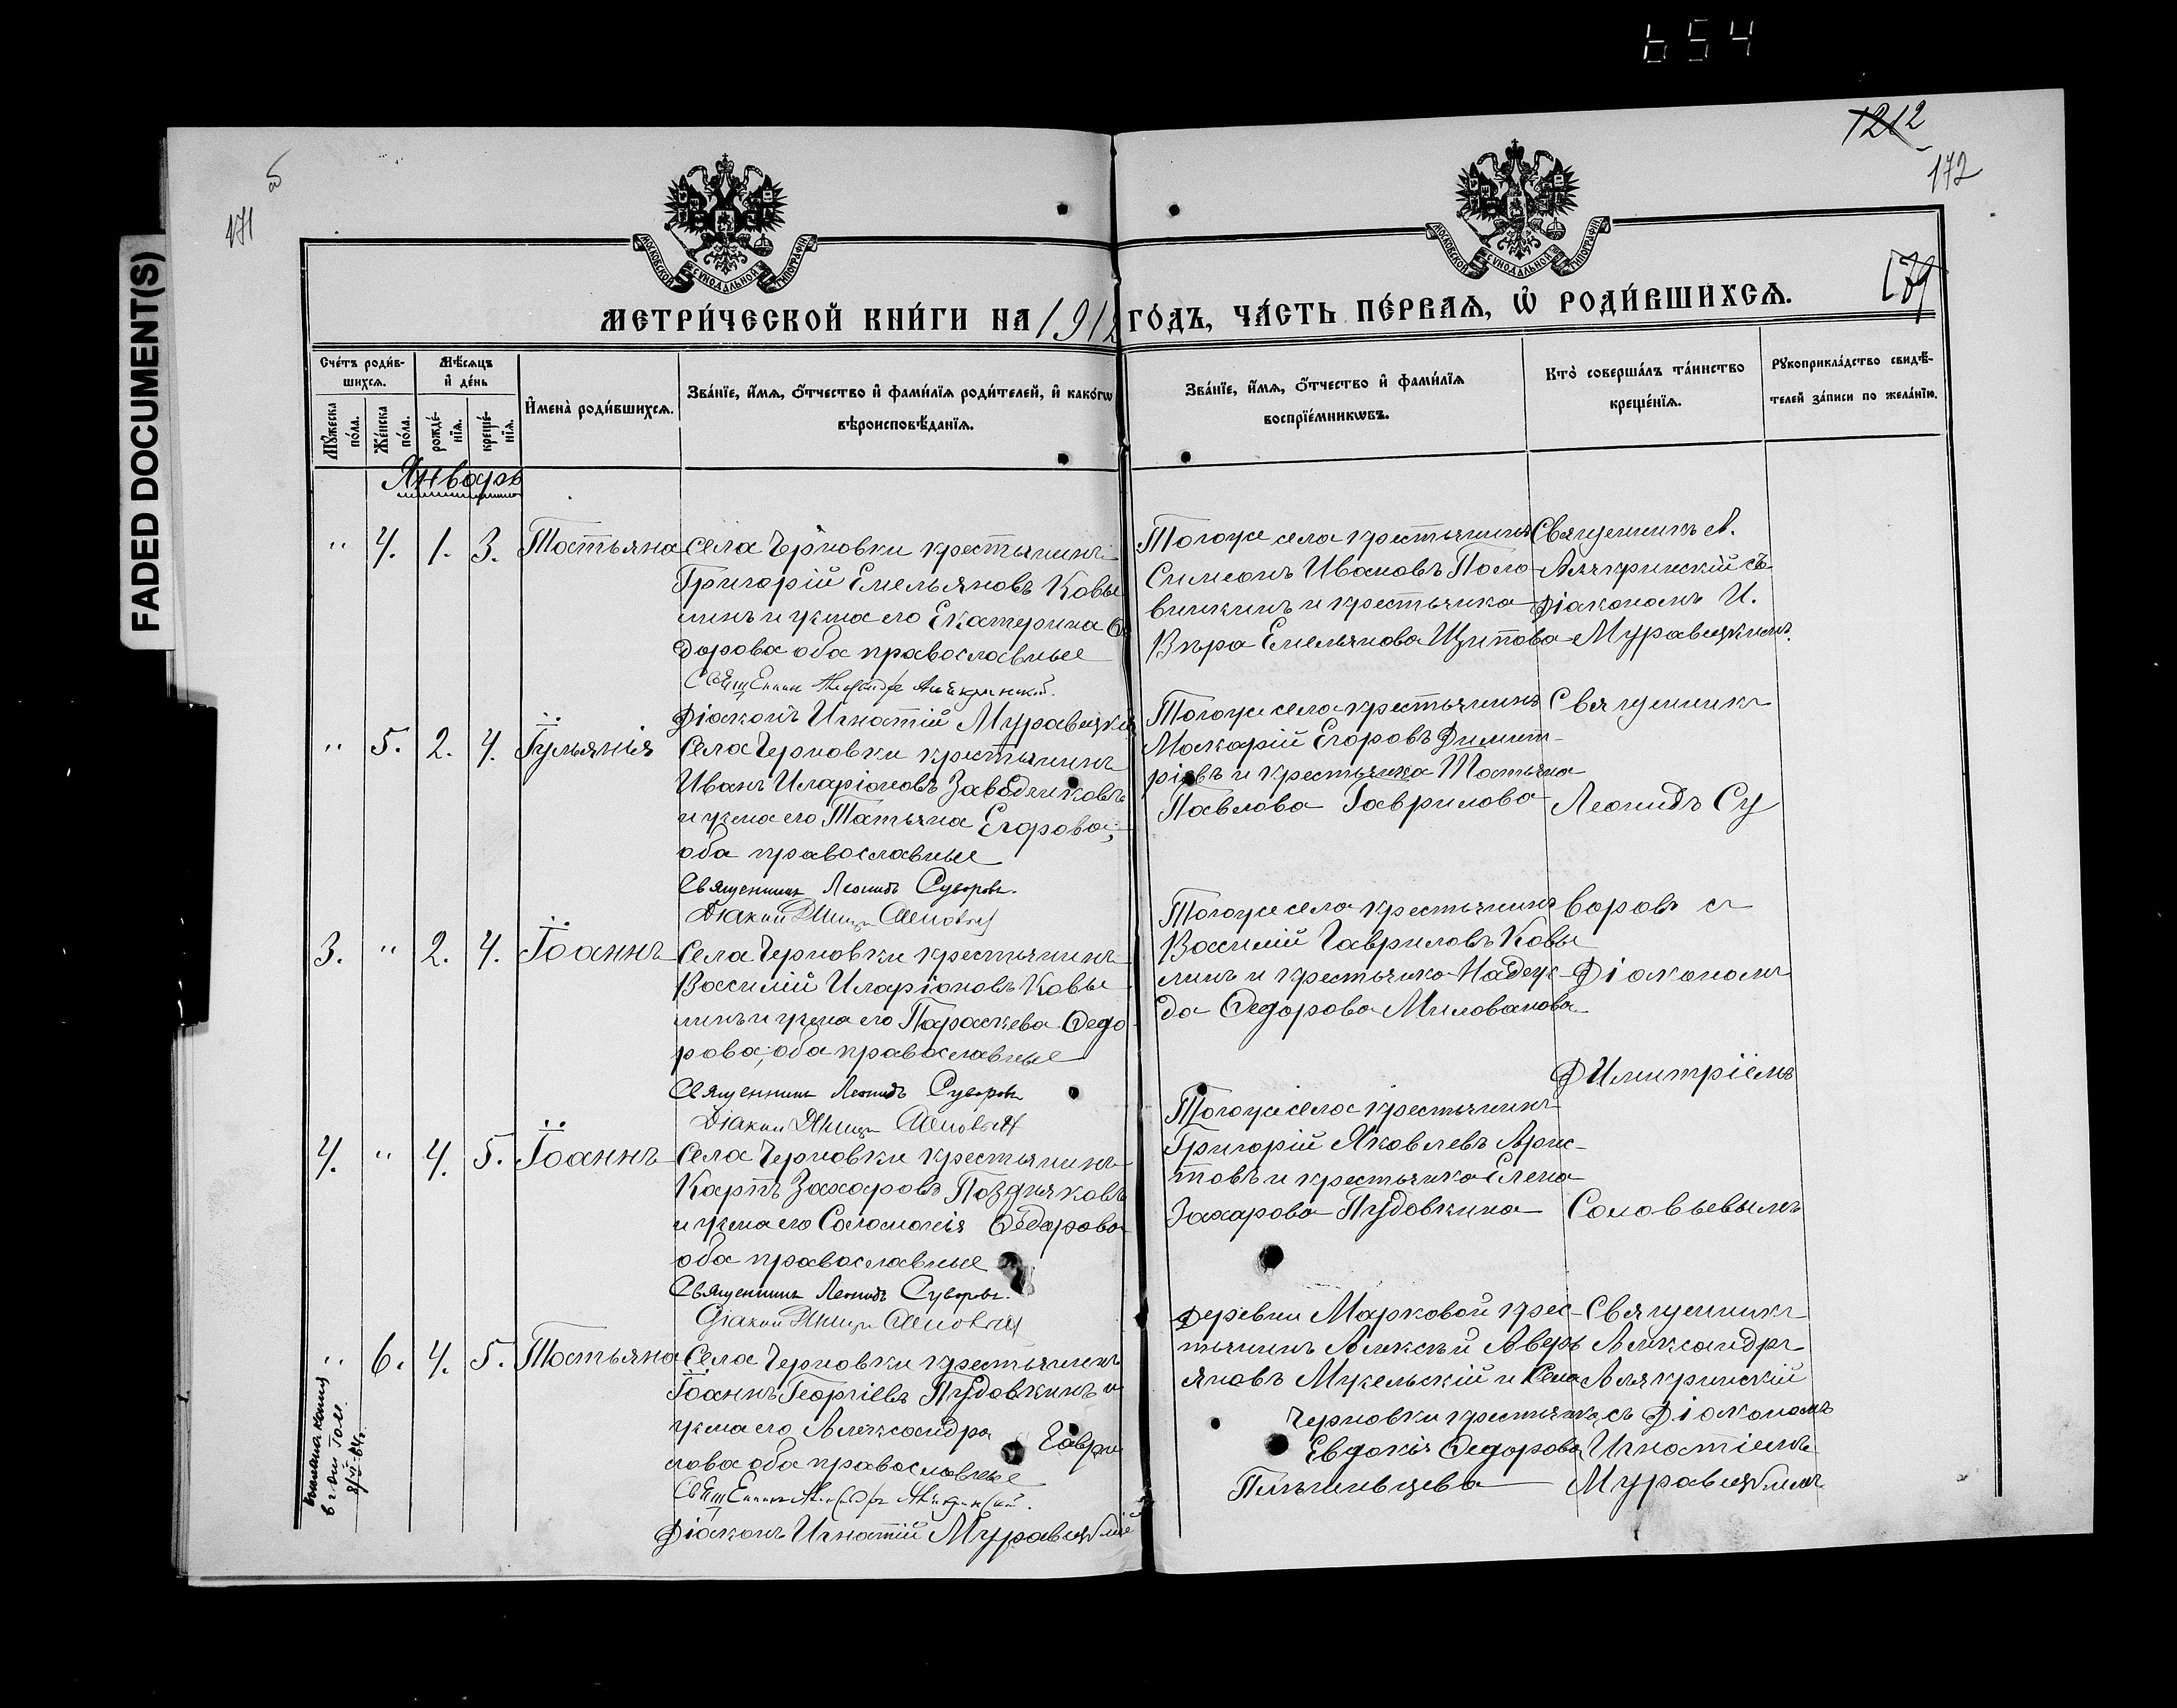 654
FADED DOCUMENT(S)
171
1212
172
179
МОСКОВСКОЙ СѴНОДАЛЬНОЙ ТИПОГРАФІИ
МОСКОВСКОЙ СѴНОДАЛЬНОЙ ТИПОГРАФІИ
МЕТРИ́ЧЕСКОЙ КНИ́ГИ НА 1912 ГО́ДЪ, ЧА́СТЬ ПЕ́РВАЯ, Ѡ҆ РОДИ́ВШИХСЯ.
Сче́тъ роди́в-
шихся.
Мѣ́сяцъ
и҆ де́нь
Мꙋ́жеска по́ла.
Же́нска по́ла.
рожде́-
нїя.
креще́-
нїя.
И҆мена̀ роди́вшихся.
Зва́нїе, и҆́мя, ѻ҆́тчество и҆ фами́лїя роди́телей, и҆ како́гѡ
вѣроисповѣ́данїя.
Зва́нїе, и҆́мя, ѻ҆́тчество и҆ фами́лїя
воспрїе́мникѡвъ.
Кто̀ соверша́лъ та́инство
креще́нїя.
Рꙋкоприкла́дство свидѣ́-
телей за́писи по жела́нїю.
Январь
" 4. 1. 3. Татьяна
Села Черновки крестьянинъ
Григорій Емельяновъ Ковы
линъ и жена его Екатерина Ѳе
дорова оба православные
Священникъ Александръ Алякринский.
Діаконъ Игнатій Муравицкій
Тогоже села крестьянинъ
Симеонъ Ивановъ Поло
винкинъ и крестьянка
Вѣра Емельянова Щипова
Священникъ А.
Алякринскій съ
Діакономъ И.
Муравицкимъ.
" 5. 2. 4. Іульянія
Села Черновки крестьянинъ
Иванъ Иларіоновъ Заводчиковъ
и жена его Татьяна Егорова;
оба православные
Священникъ Леонидъ Суворовъ.
Діаконъ
Тогоже села крестьянинъ
Макарій Егоровъ Димит-
ріевъ и крестьянка Татьяна
Павлова Гаврилова
Священникъ
Леонидъ Су
3. " 2. 4. Іоаннъ
Села Черновки крестьянинъ
Василій Иларіоновъ Ковы
линъ и жена его Параскева Ѳедо
рова; оба православные
Священникъ Леонидъ Суворовъ
Діаконъ
Тогоже села крестьянинъ
Василій Гавриловъ Ковы
линъ и крестьянка Надеж-
да Ѳедорова Милованова
воровъ съ
Діакономъ
Димитріемъ
4. " 4. 5. Іоаннъ
Села Черновки крестьянинъ
Карпъ Захаровъ Поздняковъ
и жена его Соломонія Ѳедорова
оба православные
Священникъ Леонидъ Суворовъ.
Діаконъ
Тогоже села крестьянинъ
Григорій Яковлевъ Арис-
товъ и крестьянка Елена
Захарова Пудовкина
Соловьевымъ
" 6. 4. 5. Татьяна
Села Черновки крестьянинъ
Іоаннъ Георгіевъ Пудовкинъ и
жена его Александра Гаври
лова оба православные
Священникъ Александръ Алякринский.
Діаконъ Игнатій Муравицкій
Деревни Марковой крес-
тьянинъ Алексѣй Аверь
яновъ Мукельскій и Села
Черновки крестьянка
Евдокія Ѳедорова
Священникъ
Александръ
Алякринскій
съ Діакономъ
Игнатіемъ
Муравицкимъ